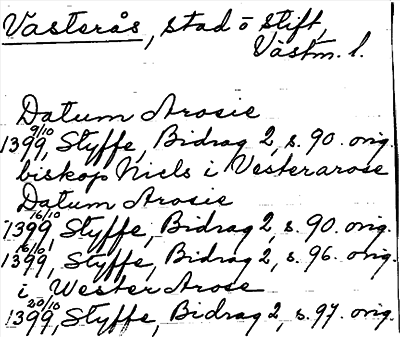 Västerås, stad o stift,
Västm. l.
Datum Arosie
1399 9/10, Styffe, Bidrag 2, s. 90. orig.
biskop Niels i Vesterarose
Datum Arosie
1399 16/10, Styffe, Bidrag 2, s. 90. orig.
1399 16/10, Styffe, Bidrag 2, s. 96. orig.
i Wester Arose
1399 20/10, Styffe, Bidrag 2, s. 97. orig.